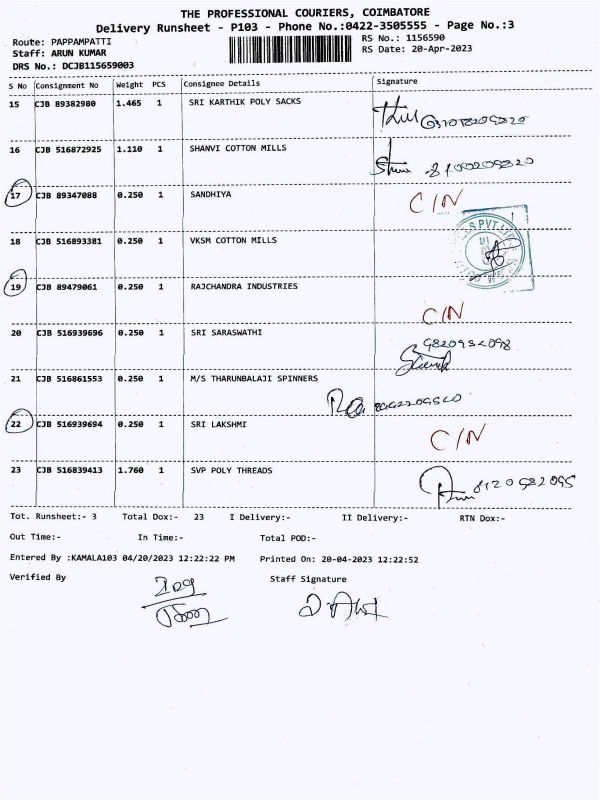 THE PROFESSIONAL COURIERS, COIMBATORE
Delivery Runsheet - P103 - Phone No.:0422-3505555 - Page No.:3
Route: PAPPAMPATTI
RS No.: 1156590
Staff: ARUN KUMAR
RS Date: 20-Apr-2023
DRS No.: DCJB115659003
S No Consignment No Weight PCS Consignee Details Signature
15 CJB 89382980 1.465 1 SRI KARTHIK POLY SACKS
16 CJB 516872925 1.110 1 SHANVI COTTON MILLS
17 CJB 89347088 0.250 1 SANDHIYA C/N
18 CJB 516893381 0.250 1 VKSM COTTON MILLS
19 CJB 89479061 0.250 1 RAJCHANDRA INDUSTRIES C/N
20 CJB 516939696 0.250 1 SRI SARASWATHI
21 CJB 516861553 0.250 1 M/S THARUNBALAJI SPINNERS
22 CJB 516939694 0.250 1 SRI LAKSHMI C/N
23 CJB 516839413 1.760 1 SVP POLY THREADS
Tot. Runsheet:- 3 Total Dox:- 23 I Delivery:- II Delivery:- RTN Dox:-
Out Time:- In Time:- Total POD:-
Entered By :KAMALA103 04/20/2023 12:22:22 PM Printed On: 20-04-2023 12:22:52
Verified By Staff Signature